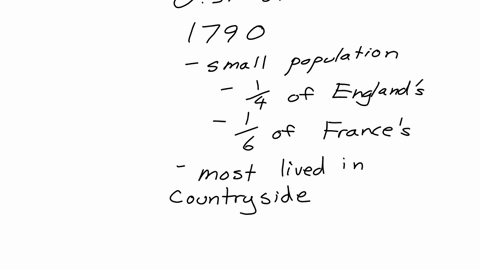 1790
- small population
- 1/4 of England's
- 1/6 of France's
- most lived in
countryside